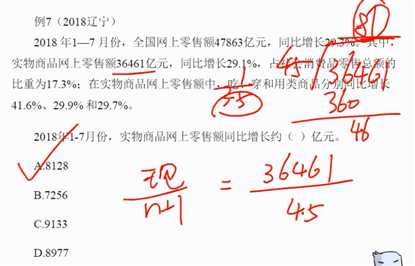 例7（2018辽宁）
2018年1—7月份，全国网上零售额47863亿元，同比增长29.3%。其中，
实物商品网上零售额36461亿元，同比增长29.1%，占 消费品零售总额的
比重为17.3%；在实物商品网上零售额中，吃、穿和用类商品分别同比增长
41.6%、29.9%和29.7%。
2018年1-7月，实物商品网上零售额同比增长约（ ）亿元。
A.8128
B.7256
C.9133
D.8977
81
45 36461
360
46
1
3.5
现
n+1
=
36461
4.5